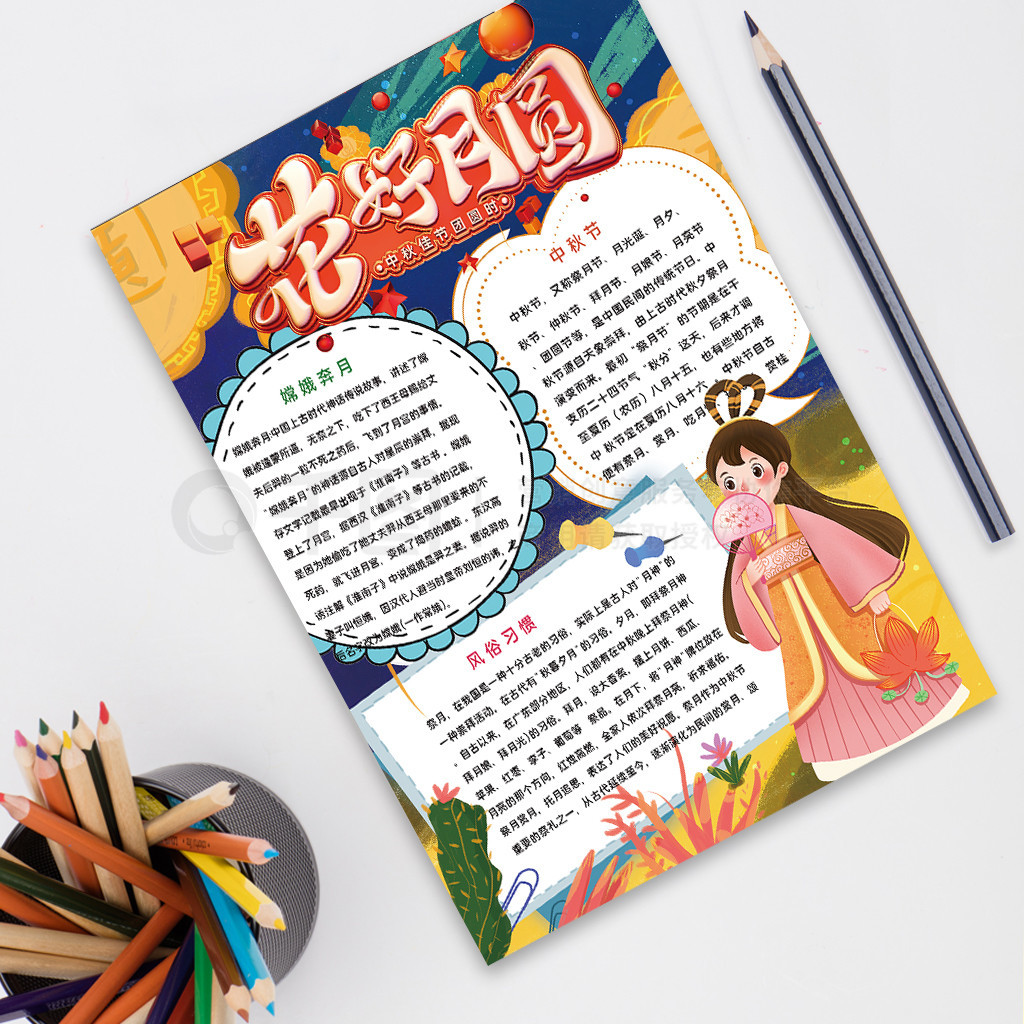 花好月圆
中秋佳节团圆时
中秋节
中秋节，又称祭月节、月光诞、月夕、
秋节、仲秋节、拜月节、月娘节、月亮节
、团圆节等，是中国民间的传统节日。中
秋节源自天象崇拜，由上古时代秋夕祭月
演变而来。最初“祭月节”的节期是在干
支历二十四节气“秋分”这天，后来才调
至夏历（农历）八月十五，也有些地方将
中秋节定在夏历八月十六 中秋节自古
便有祭月、赏月、吃月 赏桂
嫦娥奔月
嫦娥奔月中国上古时代神话传说故事，讲述了嫦
娥被逢蒙所逼，无奈之下，吃下了西王母赐给丈
夫后羿的一粒不死之药后，飞到了月宫的事情。
“嫦娥奔月”的神话源自古人对星辰的崇拜，据现
存文字记载最早出现于《淮南子》等古书，嫦娥
登上了月宫，据西汉《淮南子》等古书的记载，
是因为她偷吃了她丈夫羿从西王母那里要来的不
死药，就飞进月宫，变成了捣药的蟾蜍。东汉高
诱注解《淮南子》中说嫦娥是羿之妻，据说羿的
妻子叫恒娥，因汉代人避当时皇帝刘恒的讳，龙
后名字改为嫦娥(一作常娥)。
风俗习惯
祭月，在我国是一种十分古老的习俗，实际上是古人对“月神”的
一种崇拜活动。在古代有“秋暮夕月”的习俗。夕月，即拜祭月神
。自古以来，在广东部分地区，人们都有在中秋晚上拜祭月神(
拜月娘、拜月光)的习俗。拜月，设大香案，摆上月饼、西瓜、
苹果、红枣、李子、葡萄等 祭品。在月下，将“月神”牌位放在
月亮的那个方向，红烛高燃，全家人依次拜祭月亮，祈求福佑。
祭月赏月，托月追思，表达了人们的美好祝愿。祭月作为中秋节
重要的祭礼之一，从古代延续至今，逐渐演化为民间的赏月、颂